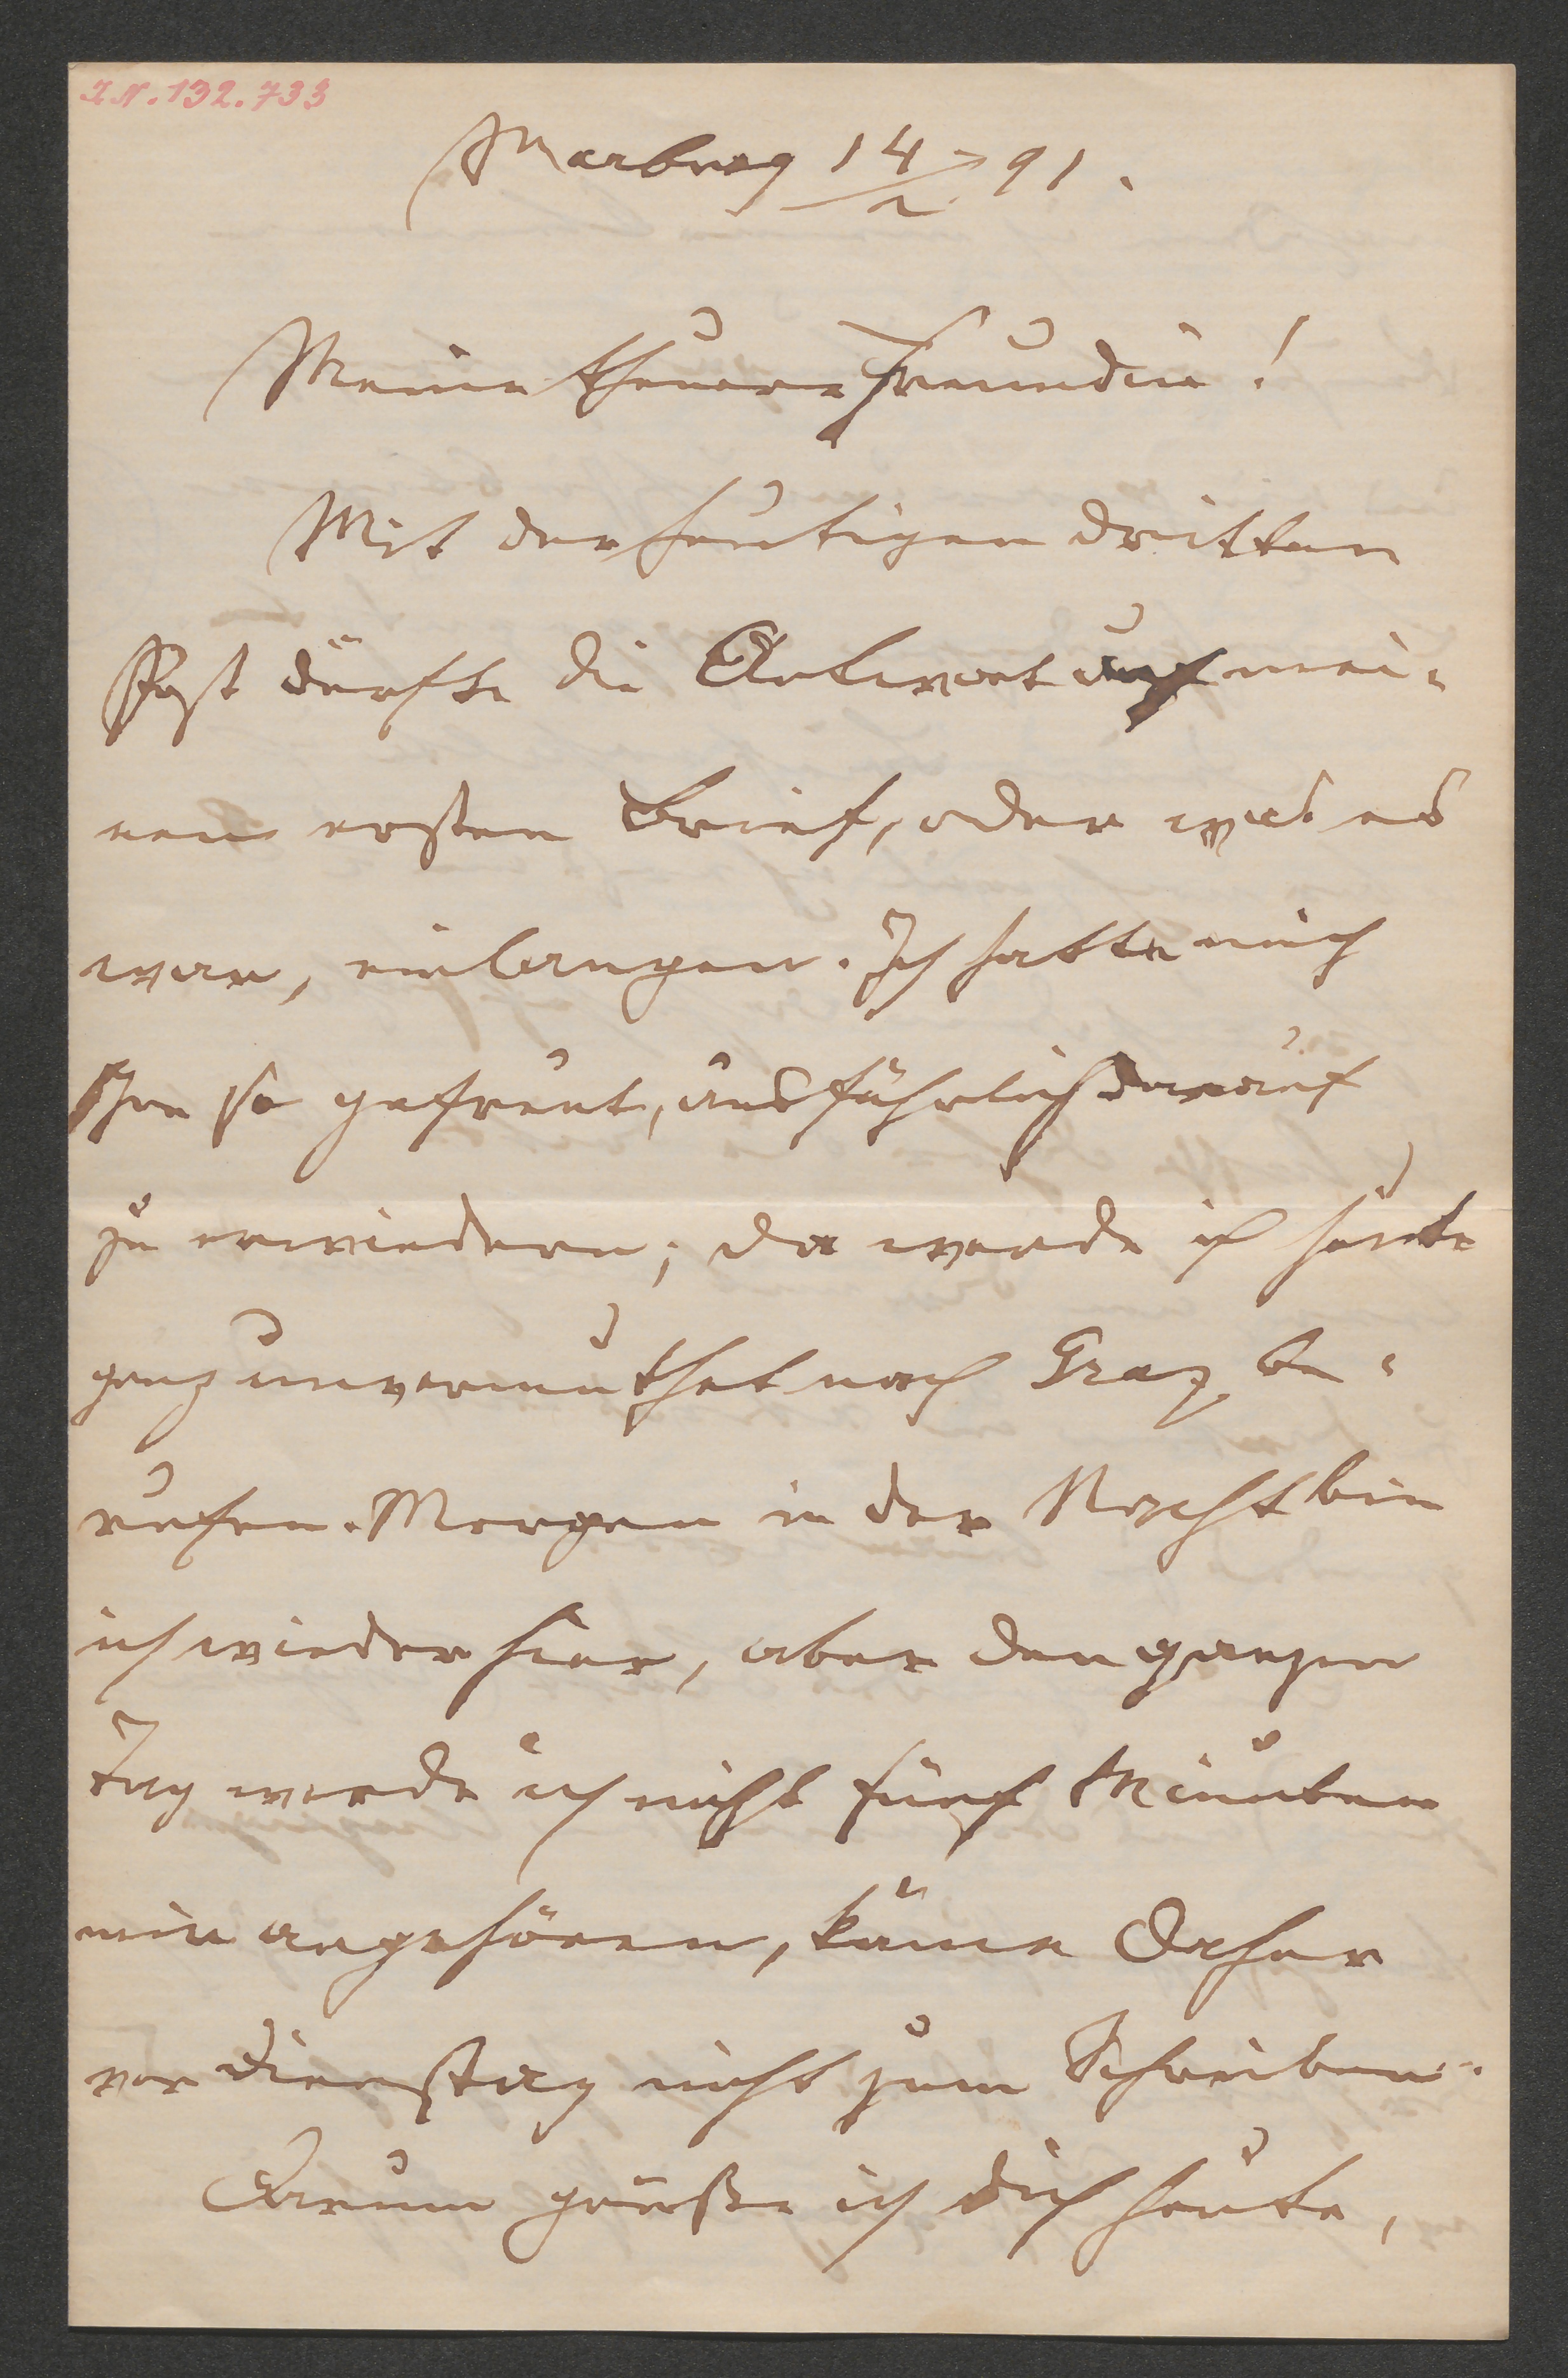 I.N. 132.733
Marburg 14/2 91.
Meine theuere Freundin!
Mit der heutigen dritten
Post dürfte die Antwort auf mei-
nen ersten Brief, oder was es
war, einlangen. Ich hatte mich
schon so gefreut, ausführlich darauf
zu erwiedern; da werde ich heute
ganz unvermuthet nach Graz be-
rufen. Morgen in der Nacht bin
ich wieder hier, aber den ganzen
Tag werde ich nicht fünf Minuten
mir angehören, käme daher
vor Dienstag nicht zum Schreiben.
Darum grüße ich Dich heute,